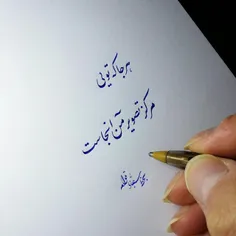 هر جا که تویی
مرکز تصویر من آنجاست